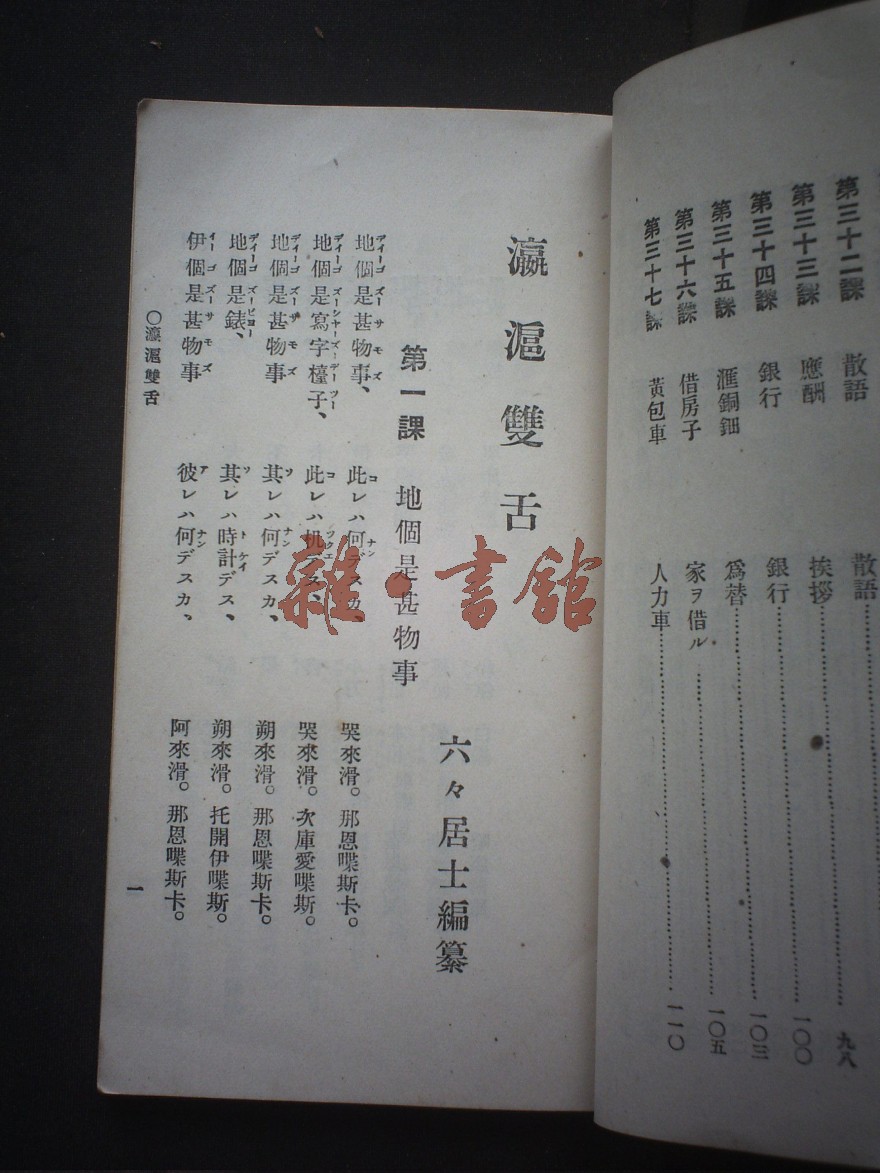 第三十二課 散語 散語
第三十三課 應酬 挨拶 九八
第三十四課 銀行 銀行 一〇〇
第三十五課 滙銅鈿 爲替 一〇三
第三十六課 借房子 家ヲ借ル 一〇五
第三十七課 黃包車 人力車 一一〇
瀛滬雙舌
六々居士編纂
第一課 地個是甚物事
地個是甚物事、 此レハ何デスカ、 哭來滑。那恩喋斯卡。
地個是寫字檯子、 此レハ机デス、 哭來滑。次庫愛喋斯。
地個是甚物事 其レハ何デスカ、 朔來滑。那恩喋斯卡。
地個是錶、 其レハ時計デス、 朔來滑。托開伊喋斯。
伊個是甚物事 彼レハ何デスカ、 阿來滑。那恩喋斯卡。
〇瀛滬雙舌
一
雜·書舘